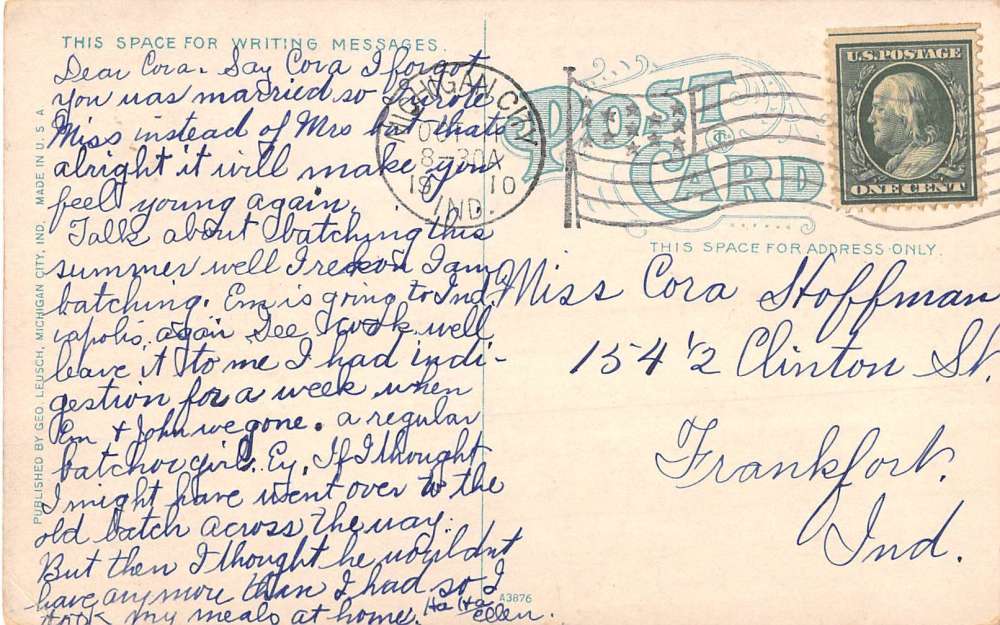 THIS SPACE FOR WRITING MESSAGES.
Dear Cora. Say Cora I forgot
you uas married so I wrote
Miss instead of Mrs but thats
alright it will make you
feel young again.
Talk about batching this
summer well I reckon I am
batching. Em is going to Ind
iapolis, again Gee I cook well
leave it to me I had indi-
gestion for a week when
Em & John we gone. a regular
batchor girl. Ey, If I thought
I might have went over to the
old batch across the way.
But then I thought he wouldnt
have anymore than I had so I
took my meals at home. Ha Ha
Ellen.
PUBLISHED BY GEO. LEUSCH, MICHIGAN CITY, IND. MADE IN U.S.A.
A3876
MICHIGAN CITY
8-30A
19 10
IND.
POST
CARD
U.S. POSTAGE
ONE CENT
THIS SPACE FOR ADDRESS ONLY.
Miss Cora Hoffman
154 1/2 Clinton St.
Frankfort.
Ind.